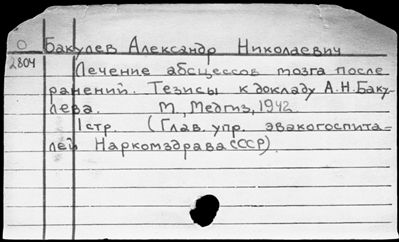 О Бакулев Александр Николаевич
2804 Лечение абсцессов мозга после
ранений. Тезисы к докладу А.Н.Баку-
лева. М, Медгиз, 1942.
1 стр. (Глав. упр. эвакогоспита-
лей Наркомздрава СССР).